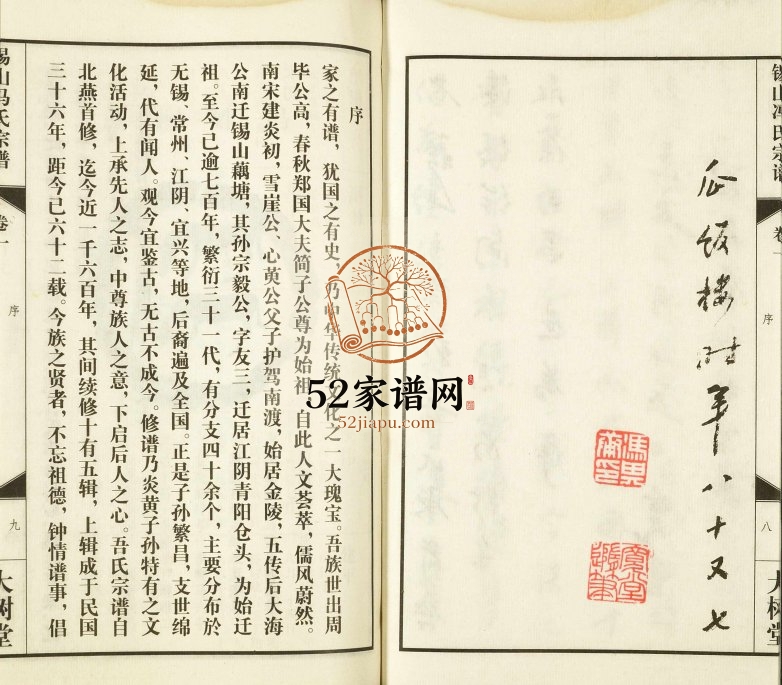 锡山冯氏宗谱
卷一
序
八
大树堂
瓜饭楼时年八十又七
序
家之有谱，犹国之有史，乃中华传统文化之一大瑰宝。吾族世出周
毕公高，春秋郑国大夫简子公尊为始祖，自此人文荟萃，儒风蔚然。
南宋建炎初，雪崖公、心英公父子护驾南渡，始居金陵，五传后大海
公南迁锡山藕塘，其孙宗毅公，字友三，迁居江阴青阳仓头，为始迁
祖。至今已逾七百年，繁衍三十一代，有分支四十余个，主要分布於
无锡、常州、江阴、宜兴等地，后裔遍及全国。正是子孙繁昌，支世绵
延，代有闻人。观今宜鉴古，无古不成今。修谱乃炎黄子孙特有之文
化活动，上承先人之志，中尊族人之意，下启后人之心。吾氏宗谱自
北燕首修，迄今近一千六百年，其间续修十有五辑，上辑成于民国
三十六年，距今已六十二载。今族之贤者，不忘祖德，钟情谱事，倡
锡山冯氏宗谱
卷一
序
九
大树堂
52家谱网
52jiapu.com